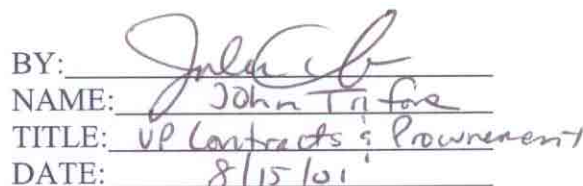 BY:
NAME: John Trifone
TITLE: VP Contracts & Procurement
DATE: 8/15/01